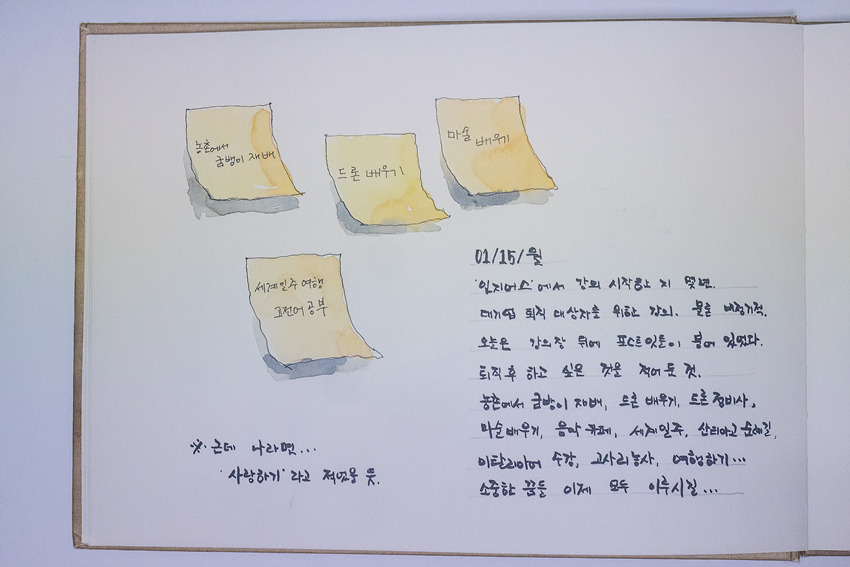 농촌에서
굼벵이 재배
드론 배우기
마술 배우기
세계일주 여행
고전어 공부
01/15/월
에서 강의 시작한 지 몇년.
대기업 퇴직 대상자를 위한 강의. 물론 비정기적.
오늘은 강의장 뒤에 포스트잇들이 붙어 있었다.
퇴직 후 하고 싶은 것을 적어 둔 것.
농촌에서 굼벵이 재배, 드론 배우기, 드론 정비사,
마술 배우기, 음악 카페, 세계일주, 산티아고 순례길,
이탈리아어 수강, 고사리 농사, 여행하기...
소중한 꿈들 이제 모두 이루시길...
※ 근데 나라면...
'사랑하기' 라고 적었을 듯.